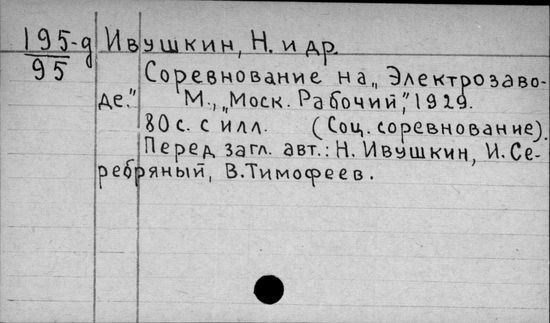 195-д Ивушкин, Н. и др.
95
Соревнование на „Электрозаво-
де." М., „Моск. Рабочий", 1929.
80 с. с илл. (Соц. соревнование).
Перед загл. авт.: Н. Ивушкин, И. Се-
ребряный, В. Тимофеев.